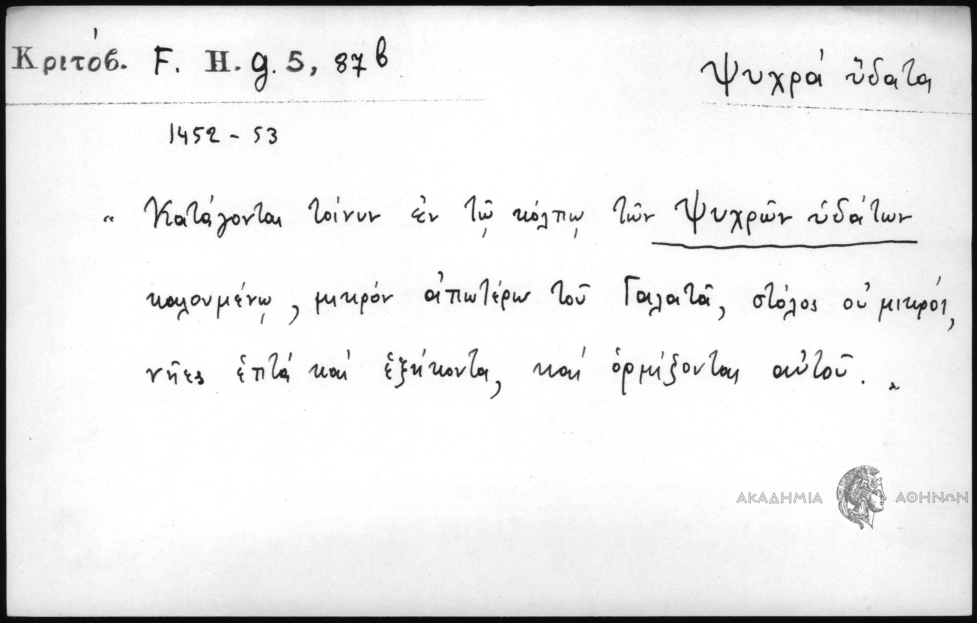 Κριτόβ. F. H. g. 5, 87b
Ψυχρά ὕδατα
1452 - 53
" Κατάγονται τοίνυν ἐν τῷ κόλπῳ τῶν Ψυχρῶν ὑδάτων
καλουμένῳ, μικρόν ἀπωτέρω τοῦ Γαλατᾶ, στόλος οὐ μικρός,
νῆες ἑπτά καί ἑξήκοντα, καί ὁρμίζονται αὐτοῦ. "
ΑΚΑΔΗΜΙΑ ΑΘΗΝΩΝ